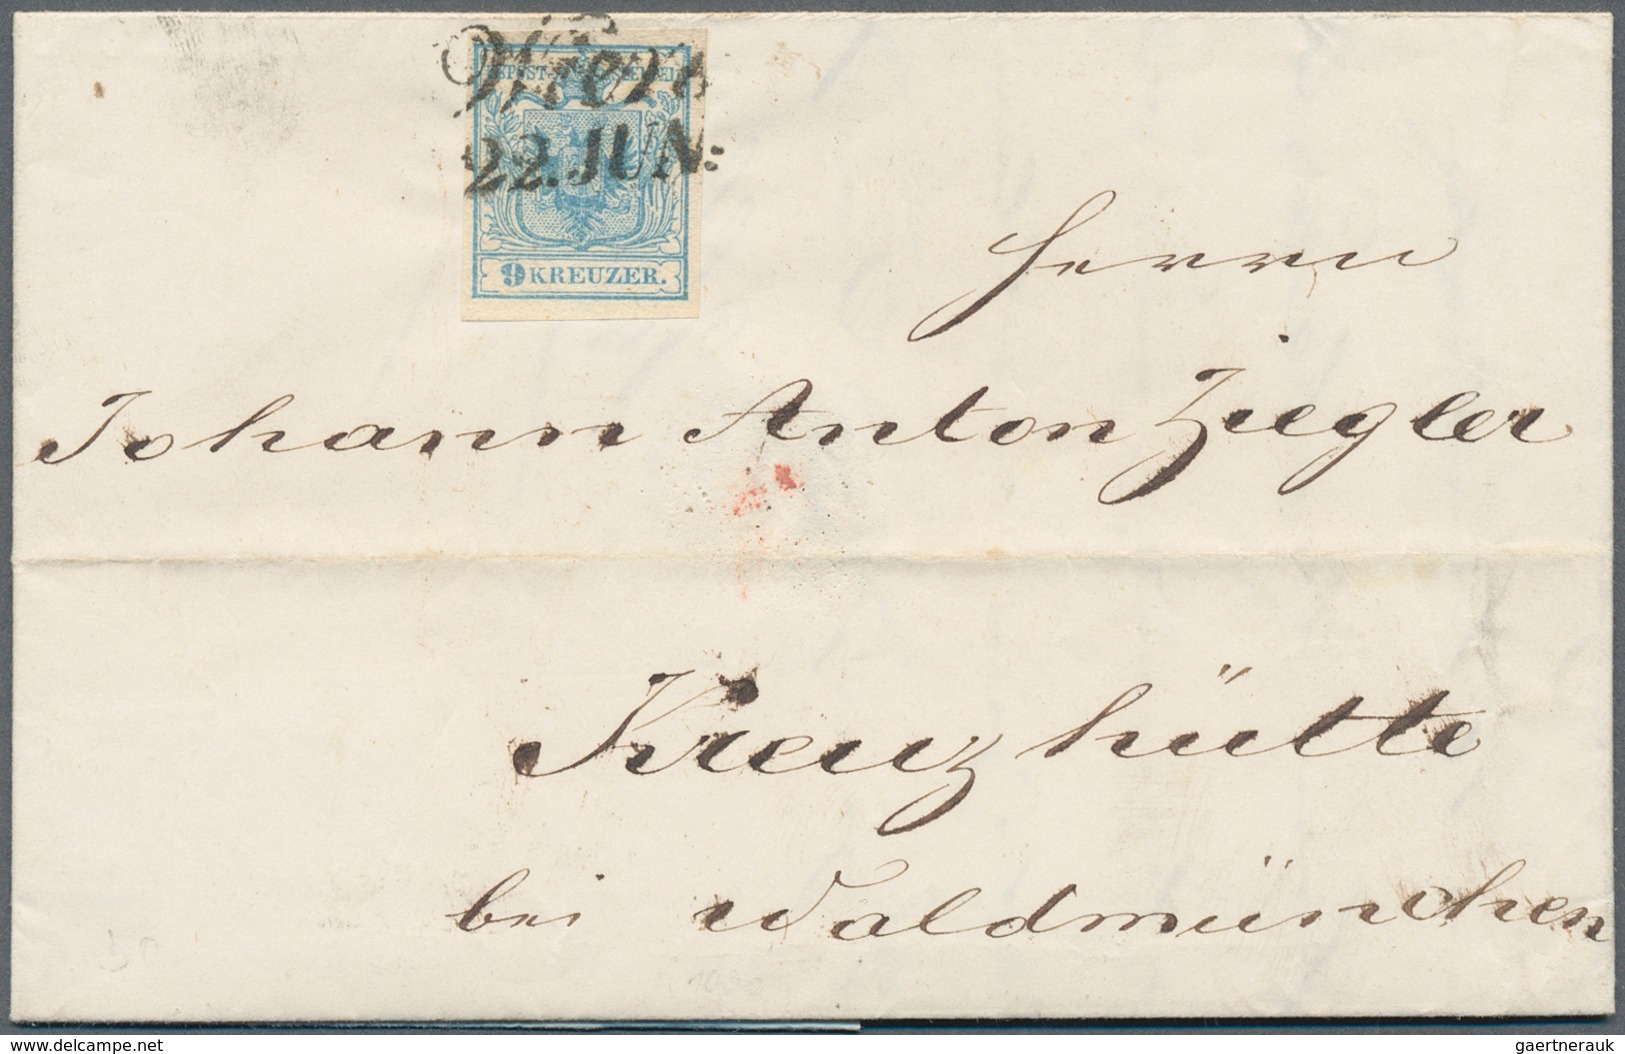 Wien
22. JUN:
9 KREUZER.
Herrn
Johann Anton Ziegler
Kreuzhütte
bei Waldmünchen
delcampe.net
gaertnerauk